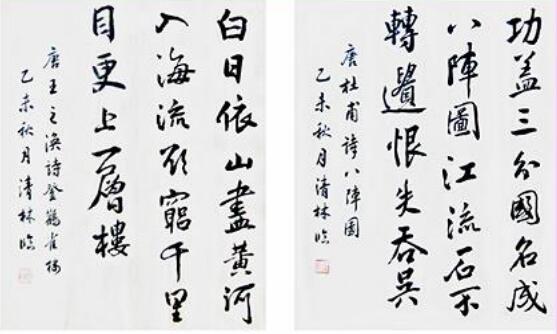 白日依山盡黄河
入海流欲窮千里
目更上一層樓
唐王之渙詩登鸛雀樓
乙未秋月清林臨
功盖三分國名成
八陣圖江流石不
轉遺恨失吞吳
唐杜甫詩八陣圖
乙未秋月清林臨